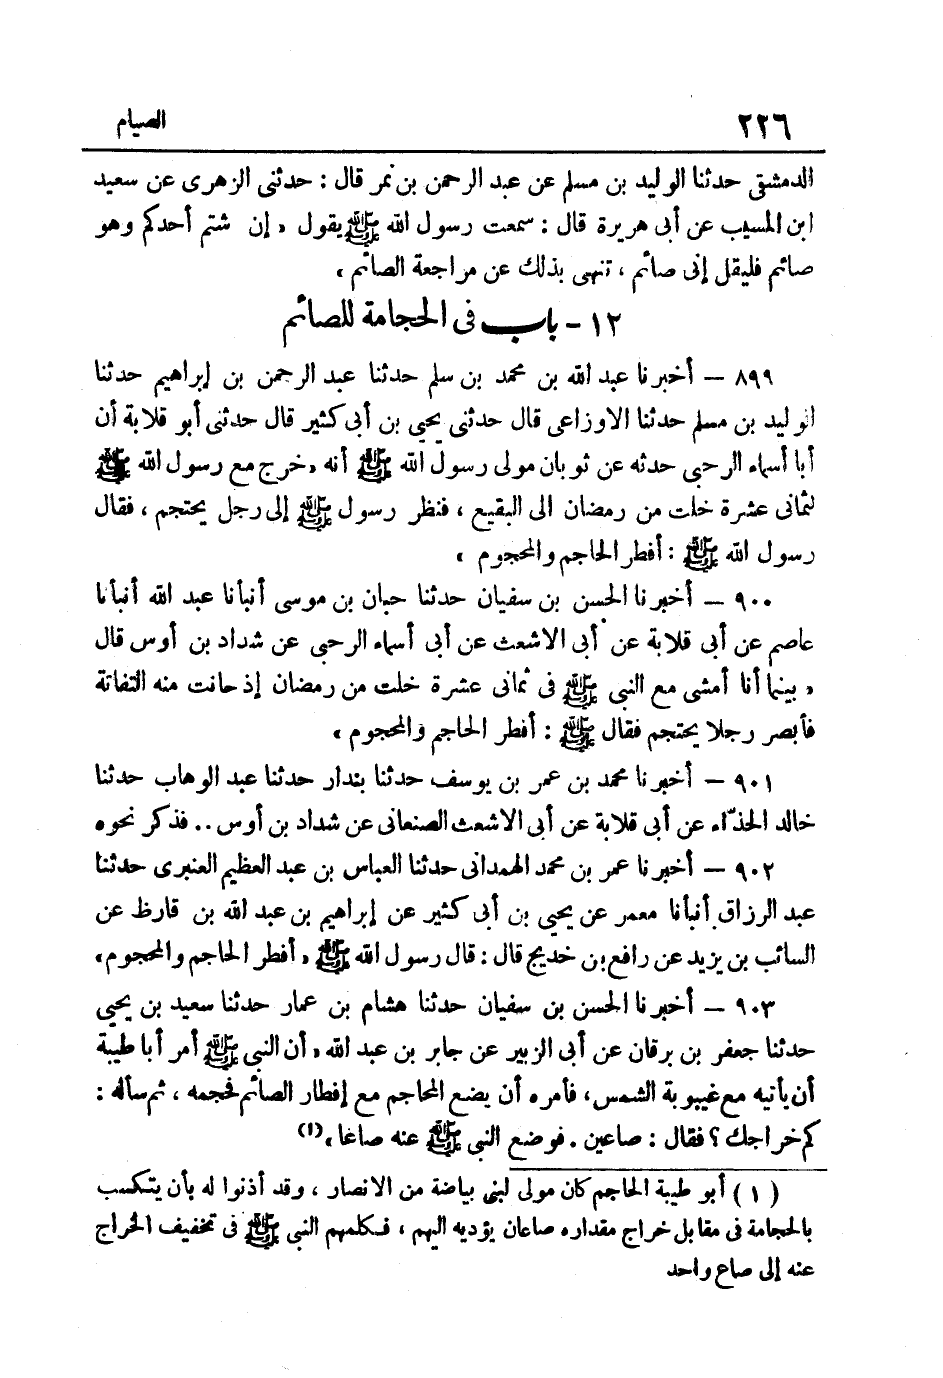 ٢٢٦ الصيام
الدمشقى حدثنا الوليد بن مسلم عن عبد الرحمن بن نمر قال : حدثنى الزهرى عن سعيد
ابن المسيب عن أبى هريرة قال : سمعت رسول الله ﷺ يقول « إن شتم أحدكم وهو
صائم فليقل إنى صائم ، تنهى بذلك عن مراجعة الصائم »
١٢ - باب فى الحجامة للصائم
٨٩٩ – أخبرنا عبد الله بن محمد بن سلم حدثنا عبد الرحمن بن إبراهيم حدثنا
الوليد بن مسلم حدثنا الاوزاعى قال حدثنى يحيى بن أبى كثير قال حدثنى أبو قلابة أن
أبا أسماء الرحبى حدثه عن ثوبان مولى رسول الله ﷺ أنه « خرج مع رسول الله ﷺ
لثمانى عشرة خلت من رمضان الى البقيع ، فنظر رسول ﷺ إلى رجل يحتجم ، فقال
رسول الله ﷺ : أفطر الحاجم والمحجوم »
٩٠٠ – أخبرنا الحسن بن سفيان حدثنا حبان بن موسى أنبأنا عبد الله أنبأنا
عاصم عن أبى قلابة عن أبى الاشعث عن أبى أسماء الرحبى عن شداد بن أوس قال
« بينما أنا أمشى مع النبى ﷺ فى ثمانى عشرة خلت من رمضان إذ حانت منه التفاتة
فأبصر رجلا يحتجم فقال ﷺ : أفطر الحاجم والمحجوم »
٩٠١ – أخبرنا محمد بن عمر بن يوسف حدثنا بندار حدثنا عبد الوهاب حدثنا
خالد الحذّاء عن أبى قلابة عن أبى الاشعث الصنعانى عن شداد بن أوس .. فذكر نحوه
٩٠٢ – أخبرنا عمر بن محمد الهمدانى حدثنا العباس بن عبد العظيم العنبرى حدثنا
عبد الرزاق أنبأنا معمر عن يحيى بن أبى كثير عن إبراهيم بن عبد الله بن قارظ عن
السائب بن يزيد عن رافع بن خديج قال : قال رسول الله ﷺ « أفطر الحاجم والمحجوم »
٩٠٣ – أخبرنا الحسن بن سفيان حدثنا هشام بن عمار حدثنا سعيد بن يحيى
حدثنا جعفر بن برقان عن أبى الزبير عن جابر بن عبد الله « أن النبى ﷺ أمر أبا طيبة
أن يأتيه مع غيبوبة الشمس ، فأمره أن يضع المحاجم مع إفطار الصائم فحجمه ، ثم سأله :
كم خراجك ؟ فقال : صاعين . فوضع النبى ﷺ عنه صاعا »(١)
( ١ ) أبو طيبة الحاجم كان مولى لبنى بياضة من الانصار ، وقد أذنوا له بأن يتكسب
بالحجامة فى مقابل خراج مقداره صاعان يؤديه اليهم ، فكلمهم النبى ﷺ فى تخفيف الخراج
عنه إلى صاع واحد